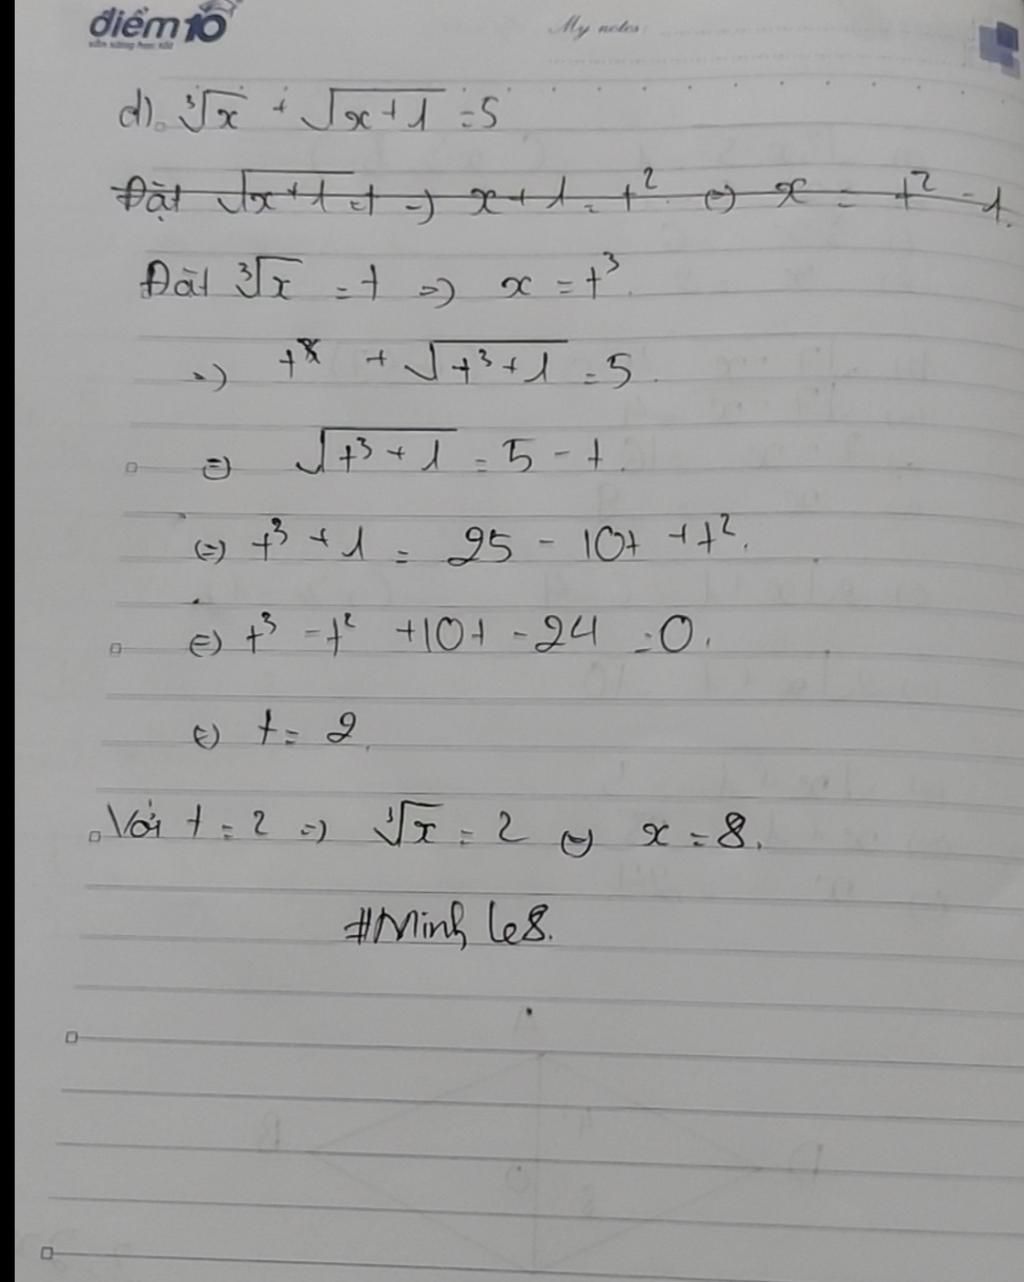 điểm 10
sẵn sàng học tốt
My notes:
d). ∛x + √(x+1) = 5
Đặt √(x+1) = t => x+1 = t² <=> x = t² - 1.
Đặt ∛x = t => x = t³.
=> t + √(t³+1) = 5.
<=> √(t³+1) = 5 - t.
<=> t³ + 1 = 25 - 10t + t².
<=> t³ - t² + 10t - 24 = 0.
<=> t = 2.
Với t = 2 => ∛x = 2 <=> x = 8.
#Minh le8.